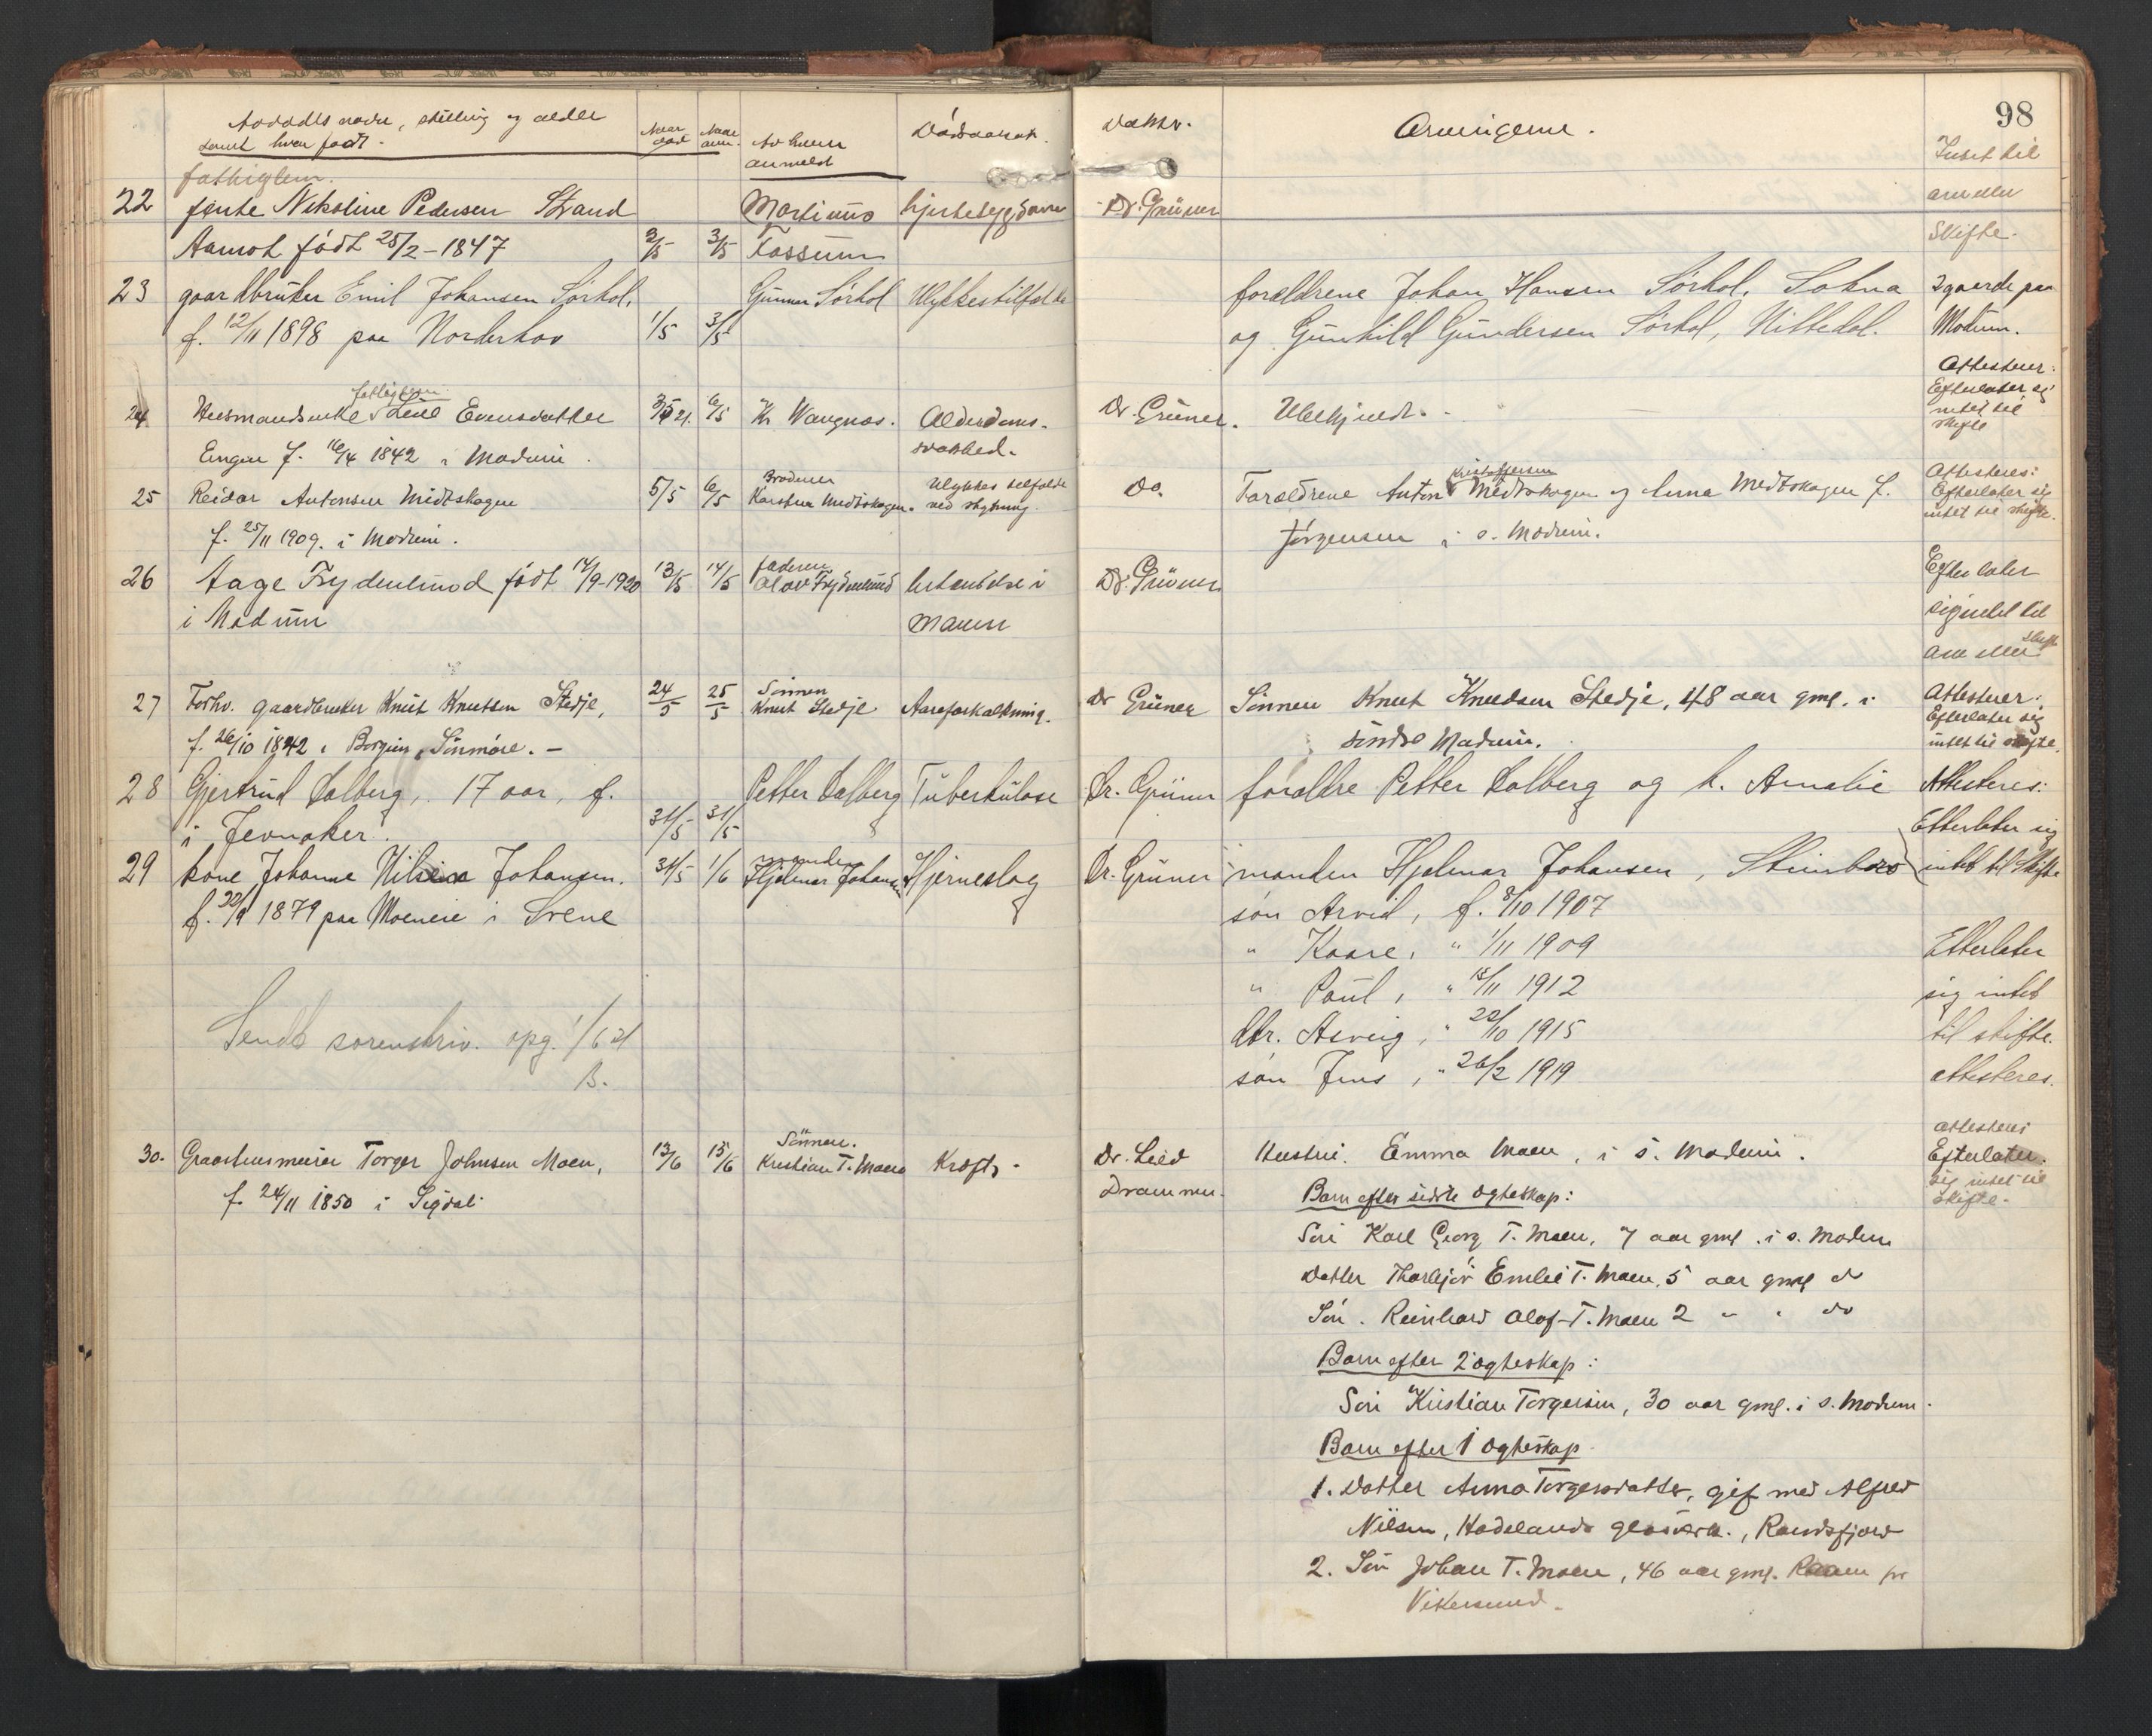 98
Avdødes navn, stilling og alder
samt hvor født.
Naar død
Naar anm.
Av hvem
anmeld
Dødsaarsak
Doktor.
Arvingerne.
Intet til
arv eller
Skifte.
fattiglem.
22 jente Nikoline Pedersen Strand Martinus hjertesygdom Dr. Grüner
Aamot født 25/2-1847 2/5 3/5 Fossum
23 gaardbruker Emil Johansen Sørhol, Gunnar Sørhol Ulykkestilfælde forældrene Johan Hansen Sørhol, Sokna 2 gaarde paa
f. 12/11 1898 paa Norderhov 1/5 3/5 og Gunhild Gundersen Sørhol, Nittedal. Modum.
fattiglem
24. Husmandsenke Lene Evensdatter 3/5 21. 6/5 Kr Wangnæs. Alderdoms- Dr. Grüner. Ubekjendt. Attesterer:
Efterlater sig
intet til
skifte
Engen f. 16/4 1842 i Modum. svakhed.
25 Reidar Antonsen Midtskogen 5/5 6/5 Broderen Ulykkes tilfælde Do. Forældrene Anton Kristoffersen Midtskogen og Anna Medtskogen f. Attesteres:
Karsten Medtskogen. ved skytning. Efterlater sig
intet til skifte.
f. 25/11 1909. i Modum. Jørgensen i s. Modum.
26 Aage Frydenlund født 14/9-1920 13/5 14/5 faderen Olav Frydenlund betendelse i Dr. Grüner Efterlater
i Modum maven sig intet til
arv eller Skifte
27 Forhv. gaardbruker Knut Knutsen Stedje, 24/5 25/5 Sønnen Knut Stedje Aareforkalkning. Dr Grüner Sønnen Knut Knudsen Stedje, 48 aar gml. i Attesterer:
Efterlater sig
f. 26/10 1842 i Borgund, Sünmøre. - søndre Modum. intet til skifte.
28 Gjertrud Dalberg, 17 aar, f. Petter Dalberg Tuberkulose Dr. Grüner forældre Petter Dalberg og h. Amalie Attesteres:
i Jevnaker. 31/5 31/5 Etterlater sig
29 kone Johanne Nilsen Johansen. 31/5 1/6 manden Hjalmar Johansen Hjerneslag Dr. Grüner manden Hjalmar Johansen, intet til Skifte
f. 1879 paa Moeneie i Svene søn Arvid, f. 8/10 1907
" Kaare, " 1/11 1909 Etterlater
" Paul, " 15/11 1912 sig intet
Sendt sorenskriv. opg. 1/6 21 dtr. Asveig, " 22/10 1915 til skifte.
B. søn Jens, " 26/2 1919 attesteres.
30. Torger Johnsen Moen, 13/6 15/6 Sønnen. Kristian T. Moen Kræft. Dr. Lied Hustru. Emma Moen, i s. Modum. attesteres
Efterlater
sig intet til
skifte.
f. 24/11 1850 i Sigdal Drammen. Barn efter sidste ægteskap:
Søn Karl Georg T. Moen, 7 aar gml. i s. Modum
Datter Emilie T. Moen, 5 aar gml do
Søn. Reinhard Olaf T. Moen 2 " " do
Barn efter 2 ægteskap:
Søn Kristian Torgersen, 30 aar gml. i s. Modum.
Barn efter 1 ægteskap
1. Datter Anna Torgersdatter, gif med Alfred
Nilsen, Hadelands glasverk., Randsfjord
2. Søn Johan T. Moen, 46 aar gml. pr
Vikersund.